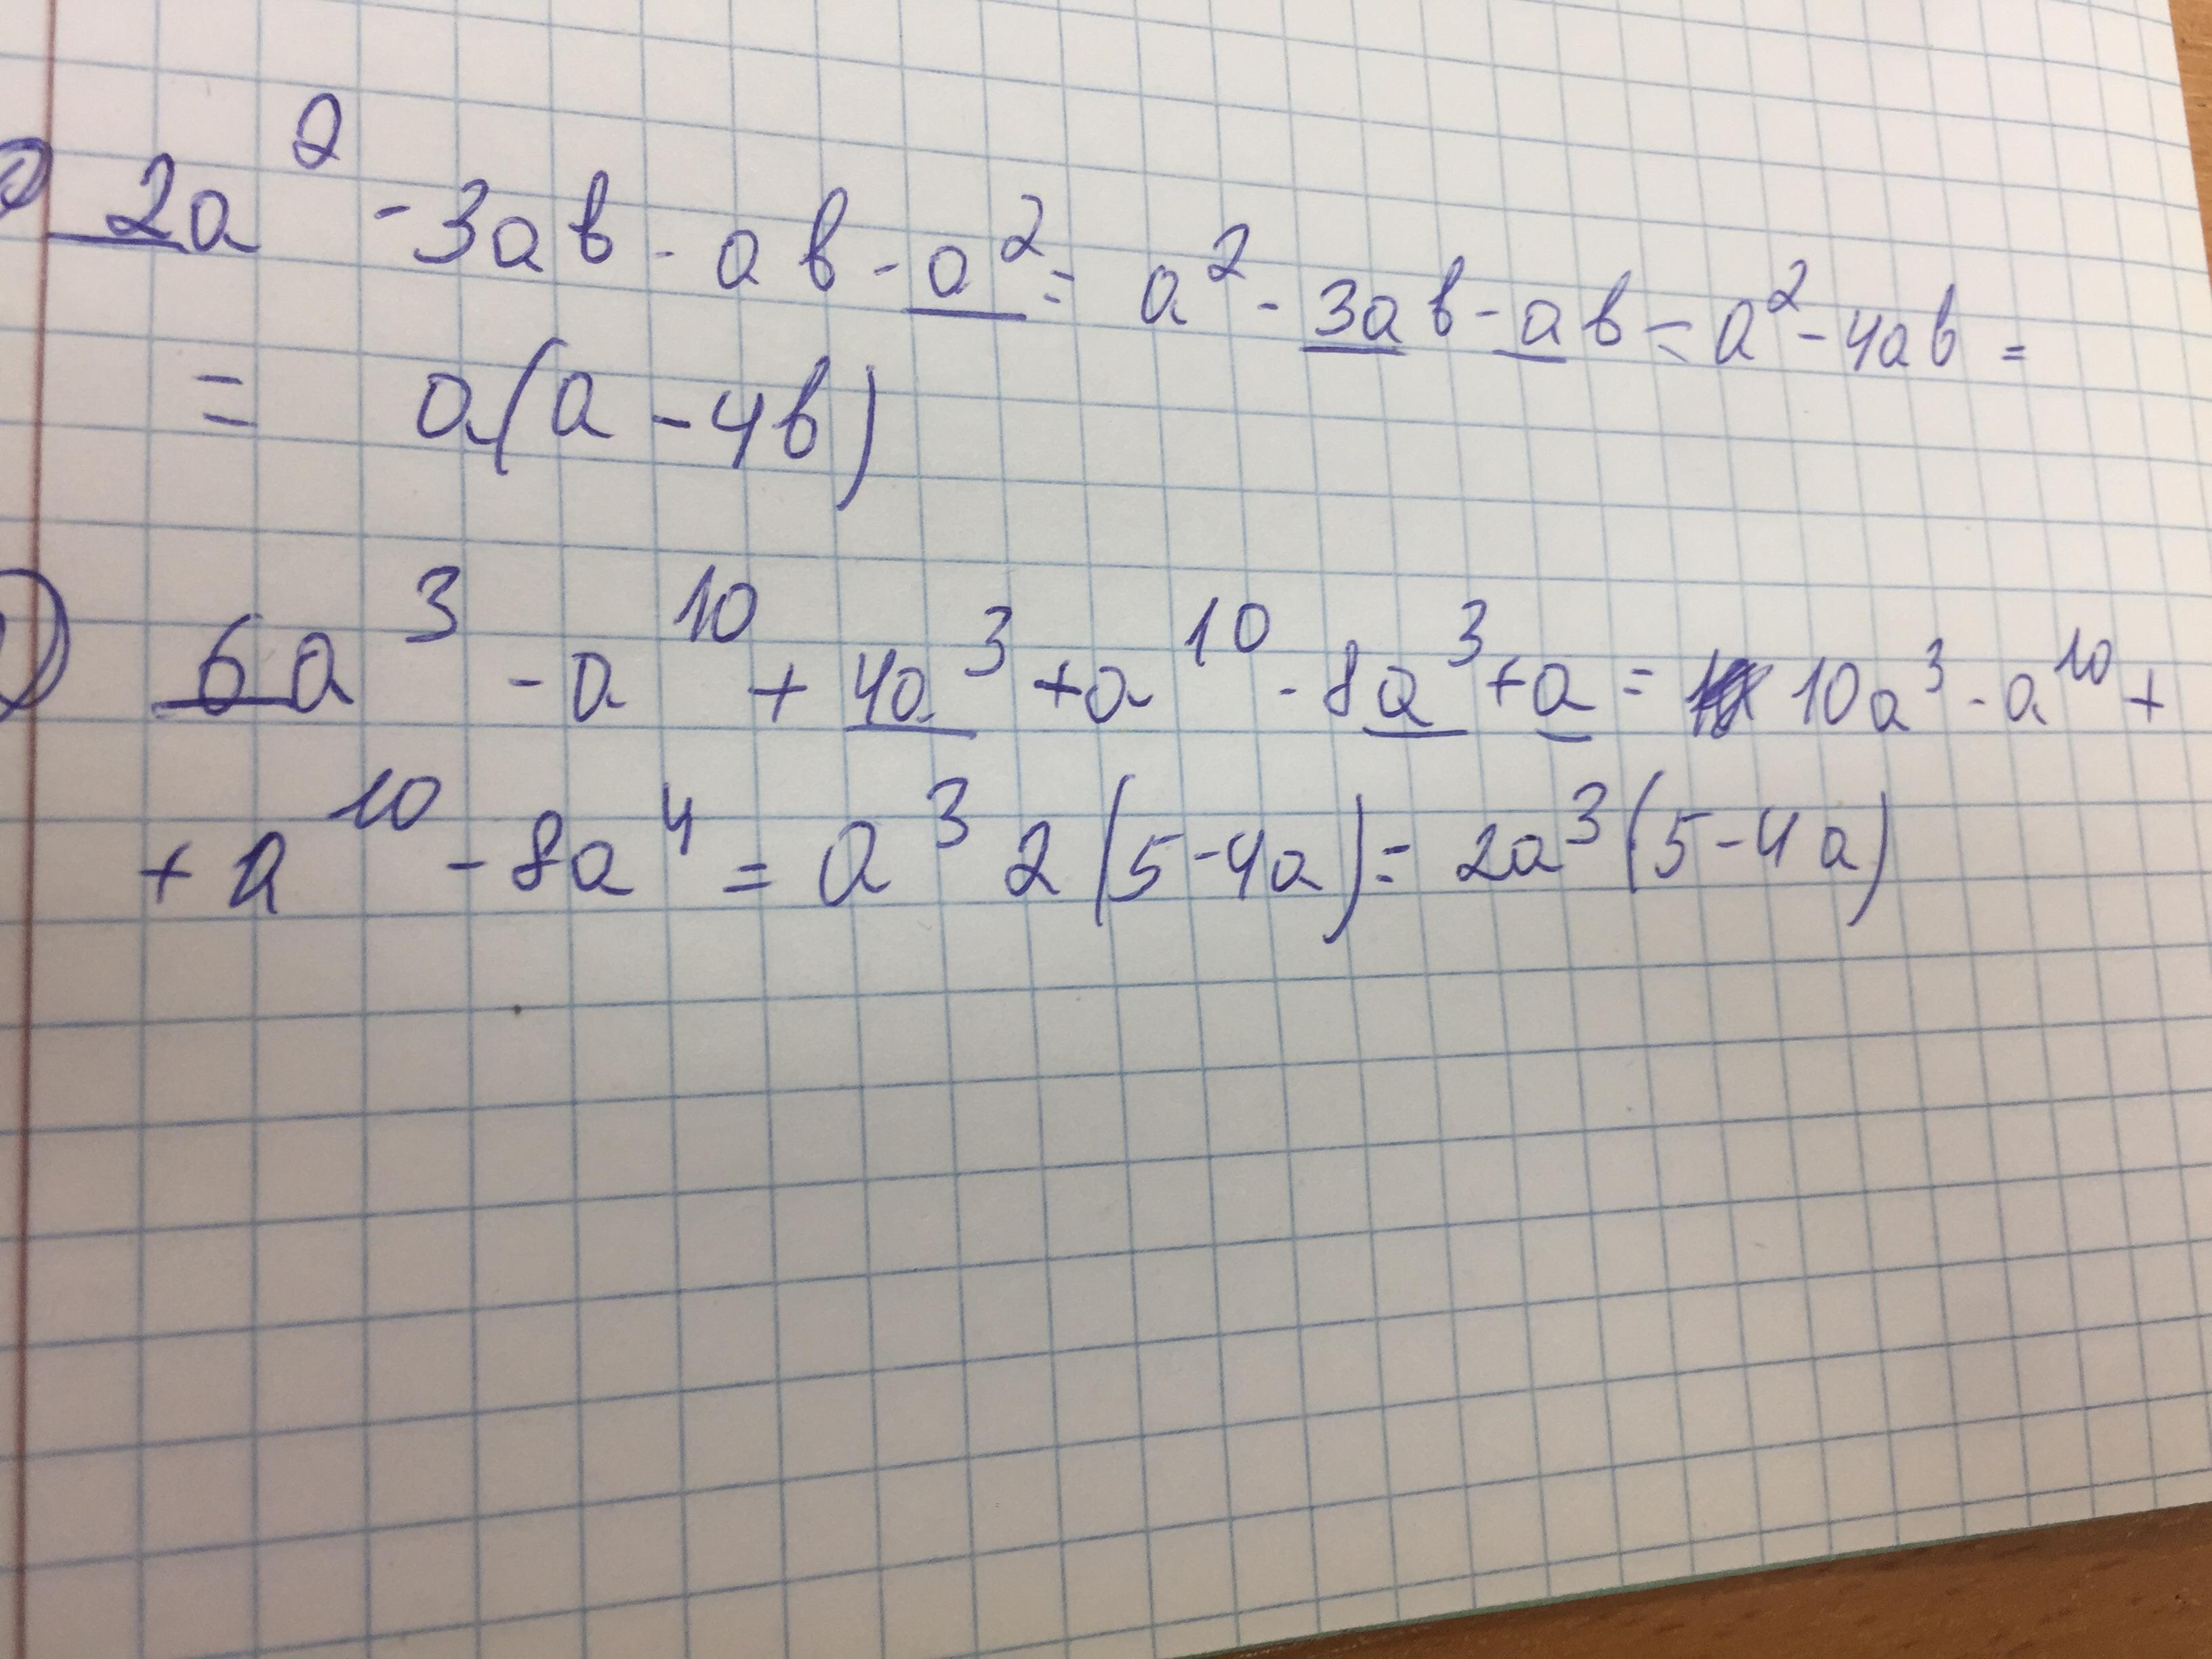 2a² - 3ab - ab - a² = a² - 3ab - ab = a² - 4ab =
= a(a - 4b)
6a³ - a¹⁰ + 4a³ + a¹⁰ - 8a³ + a = 10a³ - a¹⁰ +
+ a¹⁰ - 8a⁴ = a³ 2 (5 - 4a) = 2a³ (5 - 4a)